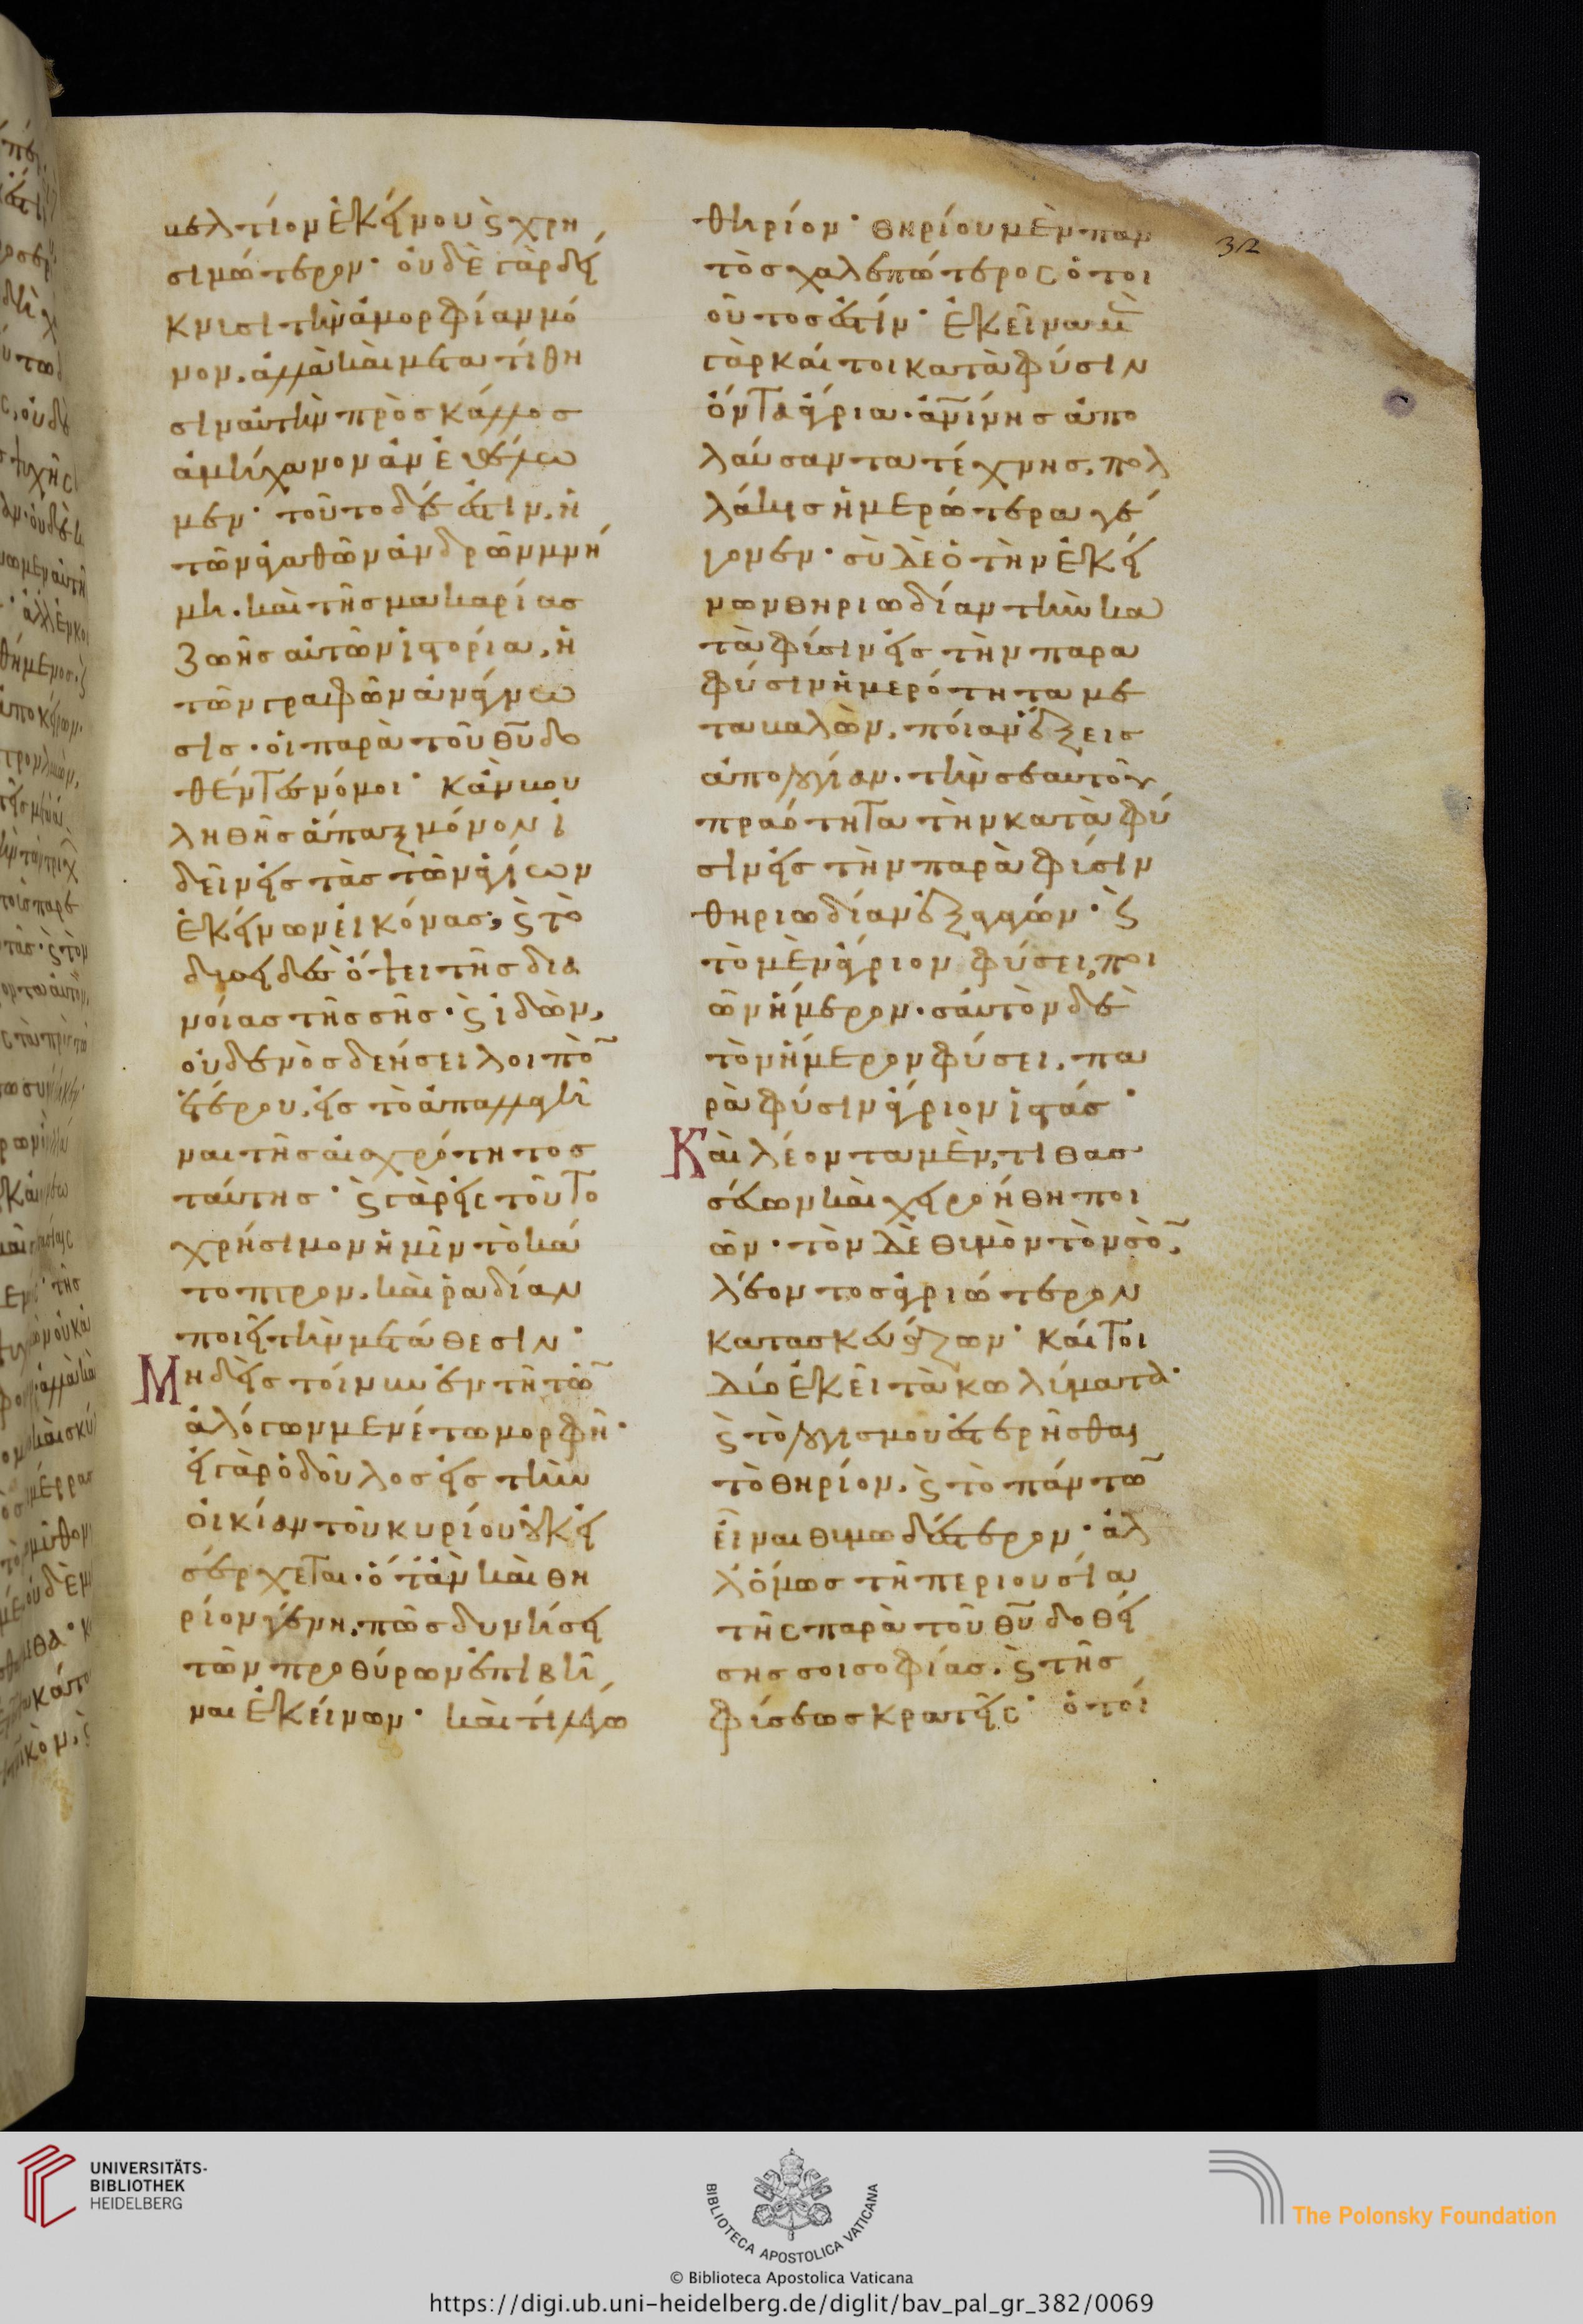 βελτίον ἐκείνου ϛ χρη
σιμώτερον· οὐδὲ γὰρ δεί
κνυσι τὴν ἀμορφίαν μό
νον, ἀλλὰ καὶ μετατίθη
σιν αὐτὴν πρὸς κάλλος
ἀμήχανον ἂν ἐθέλω
μεν· τοῦτο δέ ἐστιν, ἡ
τῶν ἀγαθῶν ἀνδρῶν μνή
μη, καὶ τῆς μακαρίας
ζωῆς αὐτῶν ἱστορία, ἡ
τῶν γραφῶν ἀνάγνω
σις· οἱ παρὰ τοῦ θ̅υ̅ δο
θέντες νόμοι· κἂν βου
ληθῆς ἅπαξ μόνον ἰ
δεῖν εἰς τὰς τῶν ἁγίων
ἐκείνων εἰκόνας, ϛ τὸ
δυσειδὲς ὄψει τῆς δια
νοίας τῆς σῆς· ϛ ἰδὼν,
οὐδενὸς δεήσει λοιπὸ̅
ἑτέρου, εἰς τὸ ἀπαλλαγῆ
ναι τῆς αἰσχρότητος
ταύτης· ϛ γὰρ εἰς τοῦτο
χρήσιμον ἡμῖν τὸ κά
τοπτρον, καὶ ῥαδίαν
ποιεῖ τὴν μετάθεσιν·
Μηδεὶς τοίνυν ἐν τῆ τῶ̅
ἀλόγων μενέτω μορφῆ·
εἰ γὰρ ὁ δοῦλος εἰς τὴν
οἰκίαν τοῦ κυρίου οὐκ εἰ
σέρχεται· ὅταν καὶ θη
ρίον γένη, πῶς δυνήσει
τῶν προθύρων ἐπιβῆ
ναι ἐκείνων· καὶ τί λέγω
θηρίον· θηρίου μὲν παν
τὸς χαλεπώτερος ὁ τοι
οῦτος ἐστίν· ἐκεῖνα μὲν
γὰρ καίτοι κατὰ φύσιν
ὄντα ἄγρια· ἀ̅ν̅ίνης ἀπο
λαύσαντα τέχνης, πολ
λάκις ἡμερώτερα γέ
γονεν· σὺ δὲ ὁ τὴν ἐκεί
νων θηριωδίαν τὴν κα
τὰ φύσιν εἰς τὴν παρα
φύσιν ἡμερότητα με
ταβαλὼν, ποίαν ἕξεις
ἀπολογίαν· τὴν σεαυτοῦ
πραότητα τὴν κατὰ φύ
σιν εἰς τὴν παρὰ φύσιν
θηριωδίαν ἐξαγαγών· ϛ
τὸ μὲν ἄγριον φύσει, ποι
ῶν ἥμερον· σαυτὸν δὲ
τὸν ἥμερον φύσει, πα
ρὰ φύσιν ἄγριον ἱστάς·
Καὶ λέοντα μὲν, τιθασ
σεύων καὶ χειροήθη ποι
ῶν· τὸν δὲ θυμὸν τὸν σὸ̅,
λέοντος ἀγριώτερον
κατασκευάζων· καίτοι
δύο ἐκεῖ τὰ κωλύματα·
ϛ τὸ λογισμοῦ ἐστερῆσθαι
τὸ θηρίον, ϛ τὸ πάντω̅
εἶναι θυμωδέστερον· ἀλ
λ᾽ ὅμως τῆ περιουσία
τῆς παρὰ τοῦ θ̅υ̅ δοθεί
σης σοι σοφίας, ϛ τῆς
φύσεως κρατεῖς· ὁ τοί
32
UNIVERSITÄTS-
BIBLIOTHEK
HEIDELBERG
BIBLIOTECA APOSTOLICA VATICANA
The Polonsky Foundation
© Biblioteca Apostolica Vaticana
https://digi.ub.uni-heidelberg.de/diglit/bav_pal_gr_382/0069